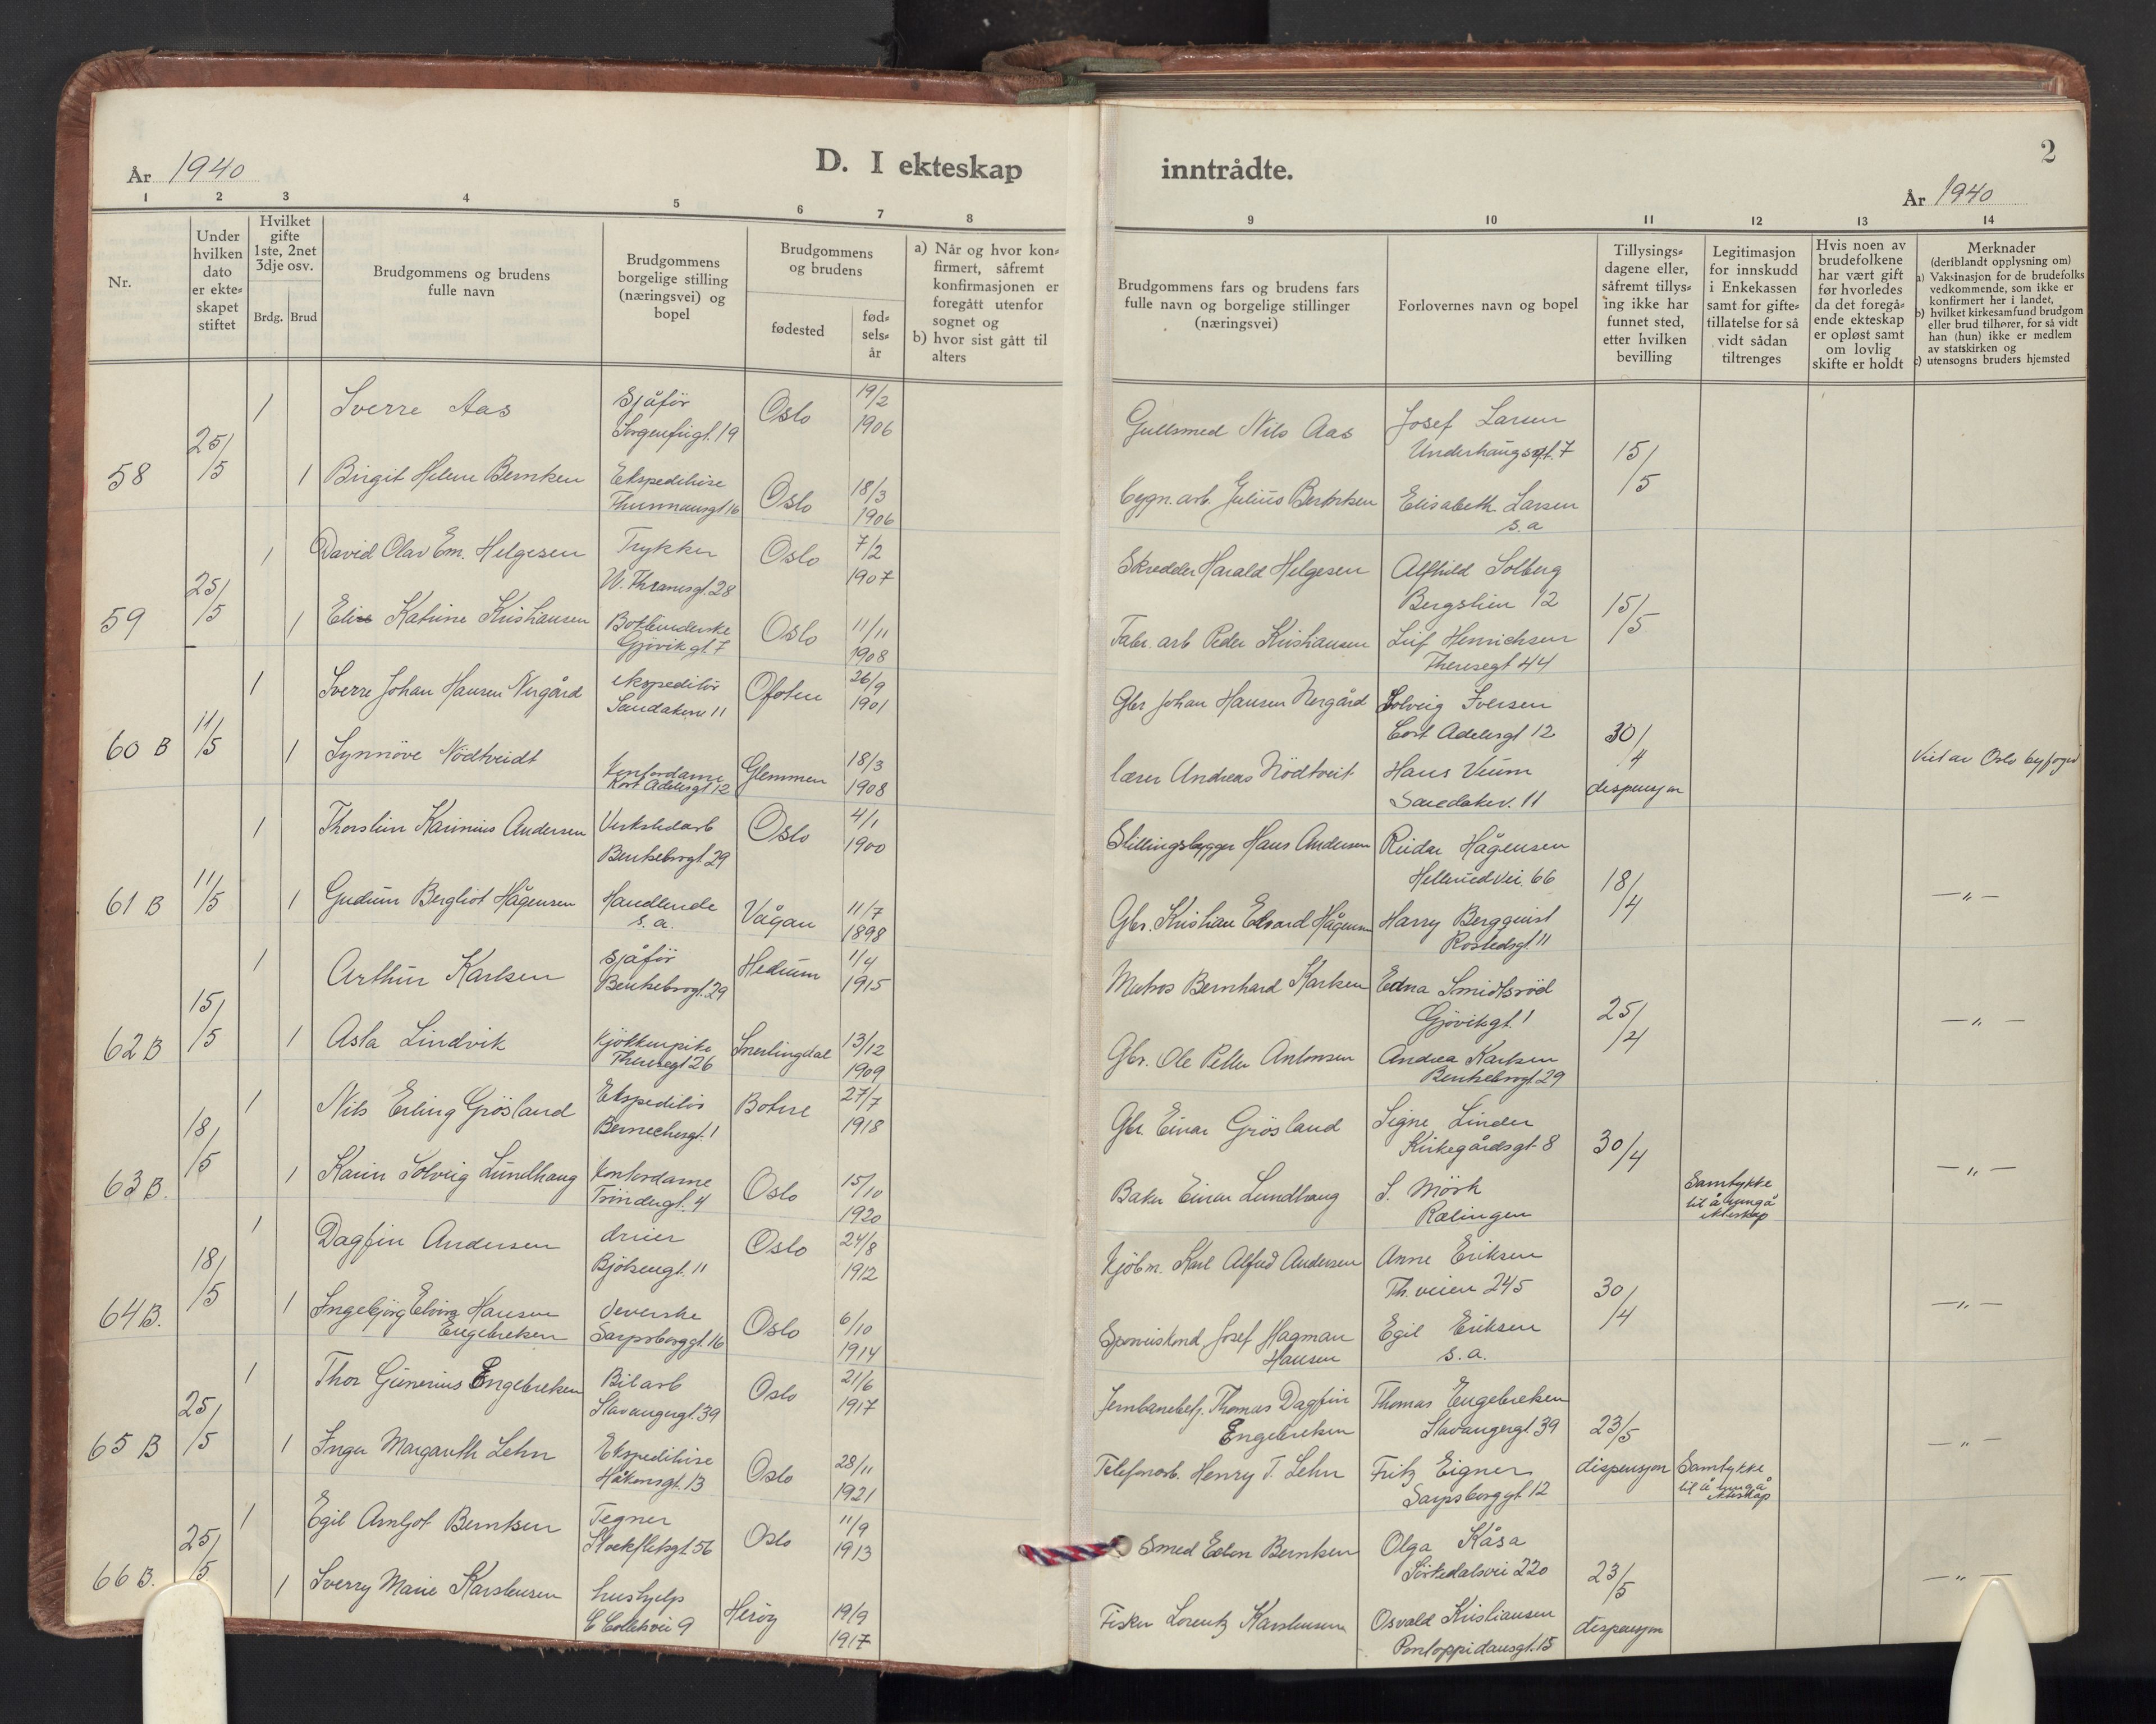 År 1940
D. I ekteskap
inntrådte.
2
År 1940
1 2 3 4 5 6 7 8
9 10 11 12 13 14
Nr.
Under hvilken dato er ekte-skapet stiftet
Hvilket gifte 1ste, 2net 3dje osv.
Brdg. Brud
Brudgommens og brudens fulle navn
Brudgommens borgelige stilling (næringsvei) og bopel
Brudgommens og brudens
fødested
fød-sels-år
a) Når og hvor kon-firmert, såfremt konfirmasjonen er foregått utenfor sognet og
b) hvor sist gått til alters
Brudgommens fars og brudens fars fulle navn og borgelige stillinger (næringsvei)
Forlovernes navn og bopel
Tillysings-dagene eller, såfremt tillys-ing ikke har funnet sted, etter hvilken bevilling
Legitimasjon for innskudd i Enkekassen samt for gifte-tillatelse for så vidt sådan tiltrenges
Hvis noen av brudefolkene har vært gift før hvorledes da det foregå-ende ekteskap er opløst samt om lovlig skifte er holdt
Merknader (deriblandt opplysning om)
a) Vaksinasjon for de brudefolks vedkommende, som ikke er konfirmert her i landet,
b) hvilket kirkesamfund brudgom eller brud tilhører, for så vidt han (hun) ikke er medlem av statskirken og
c) utensogns bruders hjemsted
1 Sverre Aas Sjåfør Sorgenfrigt. 19 Oslo 19/2 1906 Gullsmed Nils Aas Josef Larsen Underhaugsgt. 7
58 25/5 1 Birgit Helene Berntsen Ekspeditrise Thurmannsgt 16 Oslo 18/3 1906 Bygn. arb. Julius Berntsen Elisabeth Larsen s.a 15/5
1 David Olav Em. Helgesen Trykker M. Thranesgt. 28 Oslo 7/2 1907 Skredder Harald Helgesen Alfhild Solberg Bergslien 12
59 25/5 1 Elise Katrine Kristiansen Gjövikgt. 7 Oslo 11/11 1908 Fabr. arb Peder Kristiansen Leif Henrichsen Theresegt 44 15/5
1 Sverre Johan Hansen Nergård ekspeditör Sandakerv 11 Ofoten 26/9 1901 Gbr Johan Hansen Nergård Solveig Iversen Cort Adelersgt 12
60 B 11/5 1 Synnöve Nödtveidt Kontordame Kort Adelersgt 12 Glemmen 18/3 1908 lærer Andreas Nödtveit Hans Veum Sandakerv. 11 30/4 dispensjon Viet av Oslo byfogd
1 Thorstein Karinius Andersen Verkstedarb Bentsebrogt. 29 Oslo 4/1 1900 Stillingsbygger Hans Andersen Reidar Hågensen Hellerudvei. 66
61 B 11/5 1 Gudrun Bergliot Hågensen Handlende s.a. Vågan 11/7 1898 Gbr. Kristian Edvard Hågensen Harry Bergquist Rostedsgt. 11 18/4 — " —
1 Arthur Karlsen sjåför Bentsebrogt. 29 Hedrum 11/4 1915 Matros Bernhard Karlsen Edna Smidtsröd Gjövikgt. 1
62 B 15/5 1 Asta Lindvik Kjökkenpike Theresegt 26 Snertingdal 13/12 1909 Gbr. Ole Petter Antonsen Andrea Karlsen Bentsebrogt. 29 25/4 — " —
1 Nils Erling Grösland Ekspeditör Bernechersgt. 1 Botne 27/7 1918 Gbr. Einar Grösland Signe Linder Kirkegårdsgt. 8
63 B. 18/5 1 Karin Solveig Lundhaug Kontordame Tröndergt. 4 Oslo 15/10 1920 Baker Einar Lundhaug S. Mörk Rælingen 30/4 Samtykke til å inngå ekteskap — " —
1 Dagfin Andersen dreier Bjölsengt. 11 Oslo 24/8 1912 Kjöbm. Karl Alfred Andersen Anne Eriksen Th. veien 245
64 B. 18/5 1 Ingebjörg Elvira Hansen Engebretsen Veverske Sarpsborggt. 16 Oslo 6/10 1914 Sporveiskond Josef Hagman Hansen Egil Eriksen s.a. 30/4 — " —
1 Thor Gunerius Engebretsen Bilarb Stavangergt. 39 Oslo 21/6 1917 Jernbanebetj. Thomas Dagfin Engebretsen Thomas Engebretsen Stavangergt. 39
65 B 25/5 1 Inger Margareth Lehn Ekspeditrise Håkonsgt. 13 Oslo 28/11 1921 Telefonarb. Henry T. Lehn Fritz Eigner Sarpsborggt. 12 23/5 dispensjon Samtykke til å inngå ekteskap — " —
1 Egil Arnljot Berntsen Tegner Stockflethsgt. 56 Oslo 11/9 1913 Smed Edvin Berntsen Olga Kåsa Sörkedalsvei 220
66 B. 25/5 1 Sverry Marie Karstensen hushjelp C Collettsvei 9 Heröy 19/9 1917 Fisker Lorentz Karstensen Osvald Kristiansen Pontoppidansgt. 15 23/5 dispensjon — " —